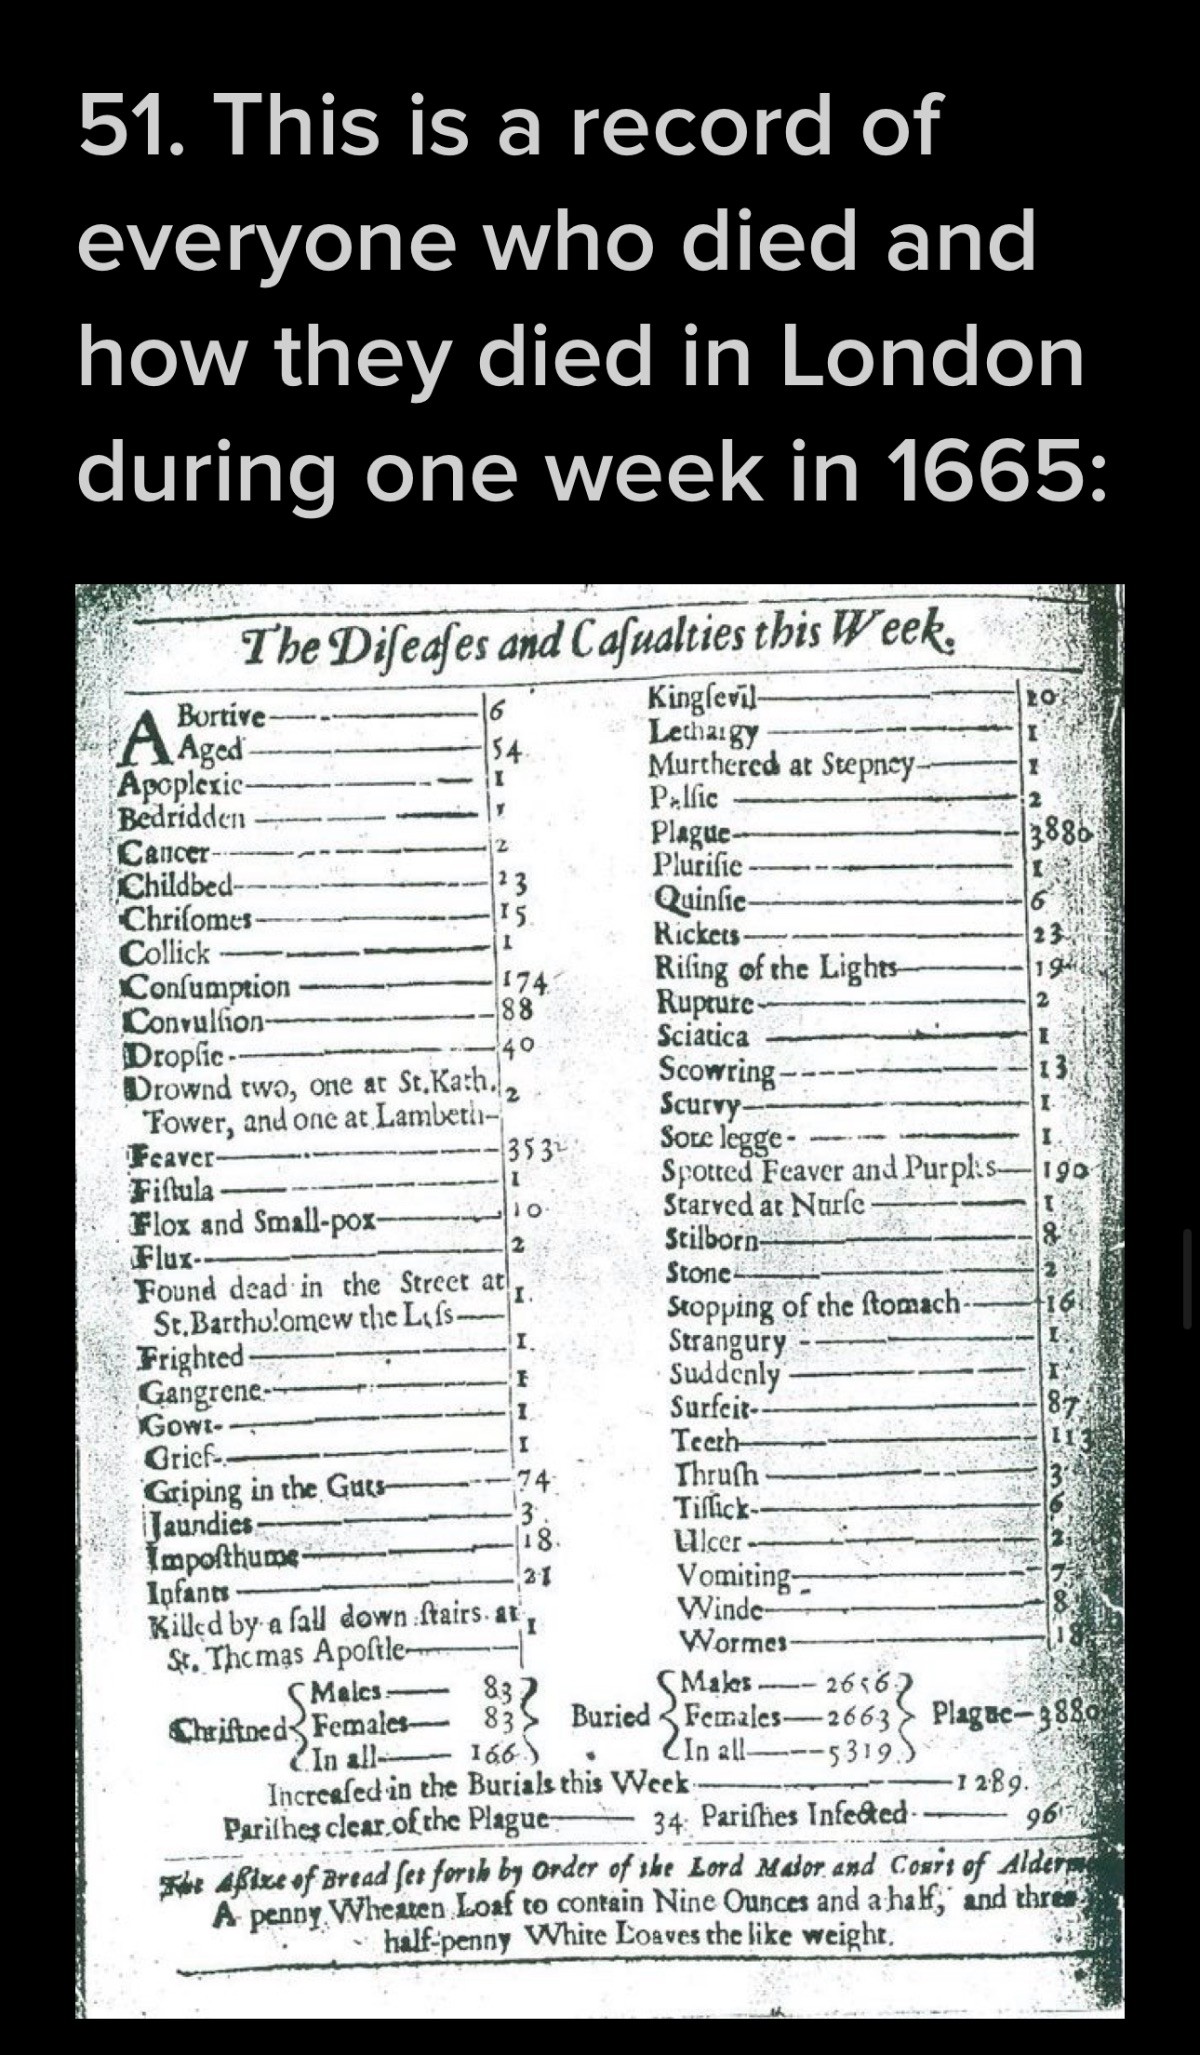 51. This is a record of
everyone who died and
how they died in London
during one week in 1665:
The Diſeaſes and Caſualties this Week.
ABortive 6
Aged 54
Apoplexie 1
Bedridden 1
Cancer 2
Childbed 23
Chriſomes 15
Collick 1
Conſumption 174
Convulſion 88
Dropſie 40
Drownd two, one at St.Kath.
Tower, and one at Lambeth 2
Feaver 353
Fiſtula 1
Flox and Small-pox 10
Flux 2
Found dead in the Street at
St.Bartholomew the Leſs 1
Frighted 1
Gangrene 1
Gowt 1
Grief 1
Griping in the Guts 74
Jaundies 3
Impoſthume 18
Infants 21
Killed by a fall down ſtairs at
St. Thomas Apoſtle 1
Kingſevil 10
Lethargy 1
Murthered at Stepney 1
Palſie 2
Plague 3880
Pluriſie 1
Quinſie 6
Rickets 23
Riſing of the Lights 19
Rupture 2
Sciatica 1
Scowring 13
Scurvy 1
Sore legge 1
Spotted Feaver and Purples 190
Starved at Nurſe 1
Stilborn 8
Stone 2
Stopping of the ſtomach 16
Strangury 1
Suddenly 1
Surfeit 87
Teeth 113
Thruſh 3
Tiſſick 6
Ulcer 2
Vomiting 7
Winde 8
Wormes 18
Chriſtned Males 83 Females 83 In all 166
Buried Males 2656 Females 2663 In all 5319 Plague 3880
Increaſed in the Burials this Week 1289.
Pariſhes clear of the Plague 34 Pariſhes Infected 96
The Aſſize of Bread ſet forth by Order of the Lord Maior and Court of
A penny Wheaten Loaf to contain Nine Ounces and a half, and three
half-penny White Loaves the like weight.